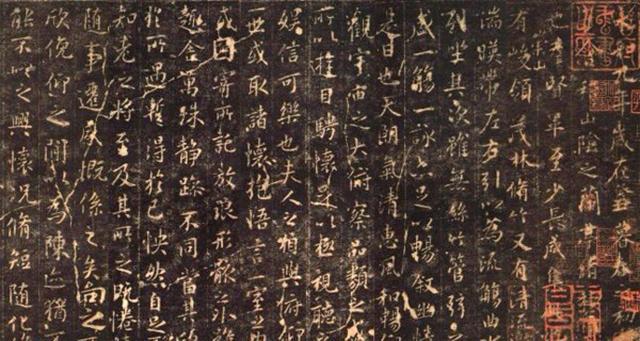 永和九年歲在癸丑暮春之初
會稽山陰之蘭亭脩禊
也羣賢畢至少長咸集
有崇山峻領茂林脩竹又有清流
湍暎帶左右引以為流觴曲水
列坐其次雖無絲竹管弦之
盛一觴一詠亦足以暢敘幽情
是日也天朗氣清惠風和暢仰
觀宇宙之大俯察品類之盛
所以遊目騁懷足以極視聽之
娛信可樂也夫人之相與俯仰
一世或取諸懷抱悟言一室之內
或因寄所託放浪形骸之外雖
趣舍萬殊靜躁不同當其欣
於所遇暫得於己怏然自足
知老之將至及其所之既惓
隨事遷感慨係之矣向之所
欣俛仰之閒以為陳迹猶不
能不以之興懷況脩短隨化